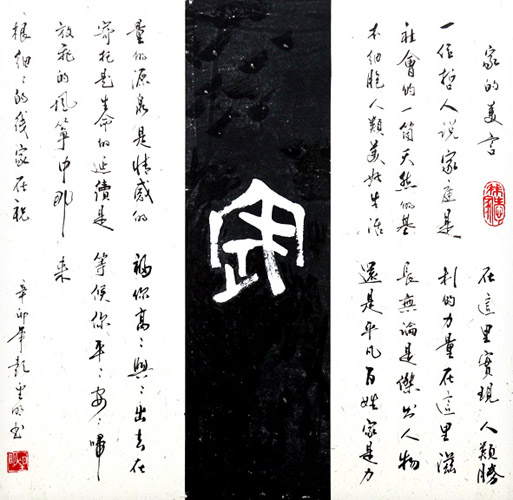 家的美言
一位哲人说家庭是
社會的一箇天然的基
本细胞人類美好生活
在這里實現人類勝
利的力量在這里滋
長無論是傑出人物
還是平凡百姓家是力
家
量的源泉是情感的
寄托是生命的延續是
放飛的風箏中那
一根细〻的线家在祝
福你高〻興〻出去在
等候你平〻安〻歸
来
辛卯年彭